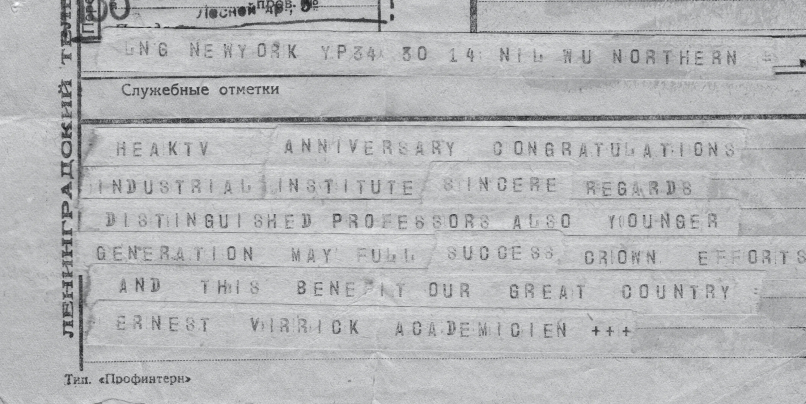 Лесной пр., №
LNG NEWYORK YP34 30 14 NIL WU NORTHERN =
Служебные отметки
HEAKTV ANNIVERSARY CONGRATULATIONS
INDUSTRIAL INSTITUTE SINCERE REGARDS
DISTINGUISHED PROFESSORS ALSO YOUNGER
GENERATION MAY FULL SUCCESS CROWN EFFORTS
AND THIS BENEFIT OUR GREAT COUNTRY =
ERNEST VIRRICK ACADEMICIEN +++
Тип. «Профинтерн»
ЛЕНИНГРАДСКИЙ